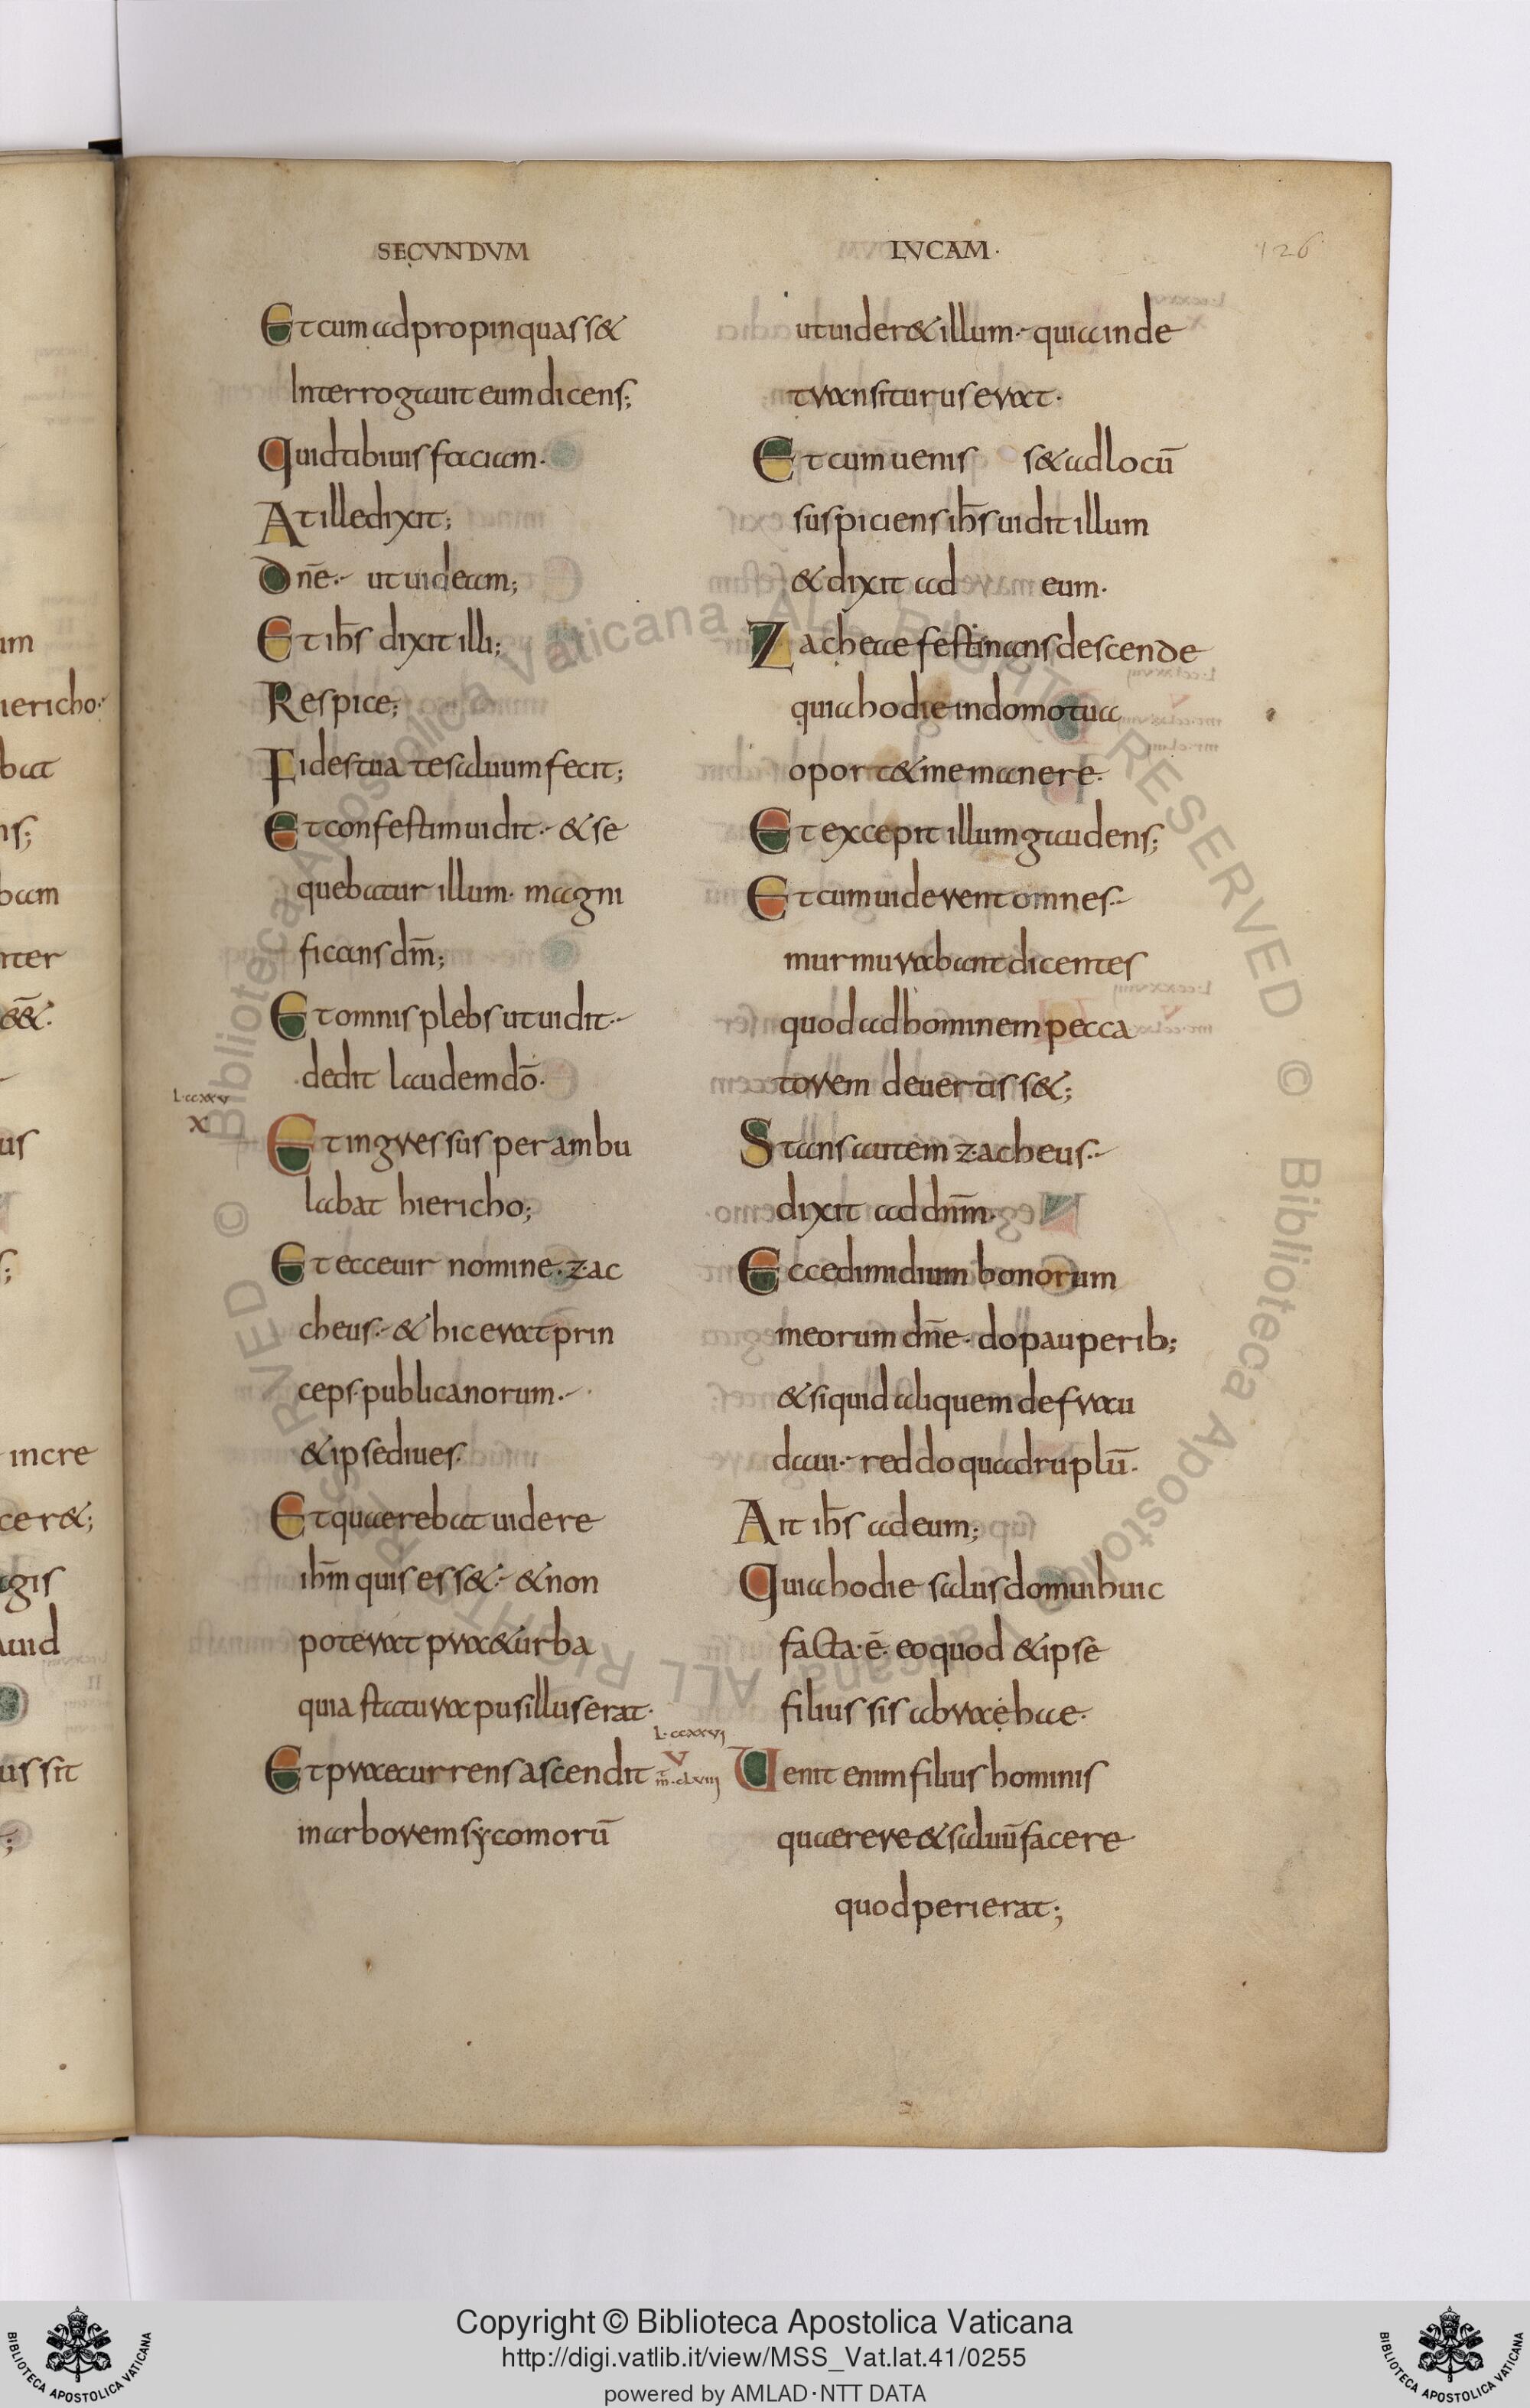 SECVNDVM
LVCAM·
126
Et cum adpropinquass&
Interrogauit eum dicens;
Quid tibi uis faciam·
At ille dixit;
Dn̄e· ut uideam;
Et ih̄s dixit illi;
Respice;
Fides tua te saluum fecit;
Et confestim uidit· & se
quebatur illum· magni
ficans dm̄;
Et omnis plebs ut uidit·
dedit laudem dō·
L·ccxxv
X
Et ingressus perambu
labat hiericho;
Et ecce uir nomine· zac
cheus· & hic erat prin
ceps publicanorum·
& ipse diues·
Et quaerebat uidere
ih̄m quis ess&· & non
poterat prae& urba
quia statura pusillus erat·
Et praecurrens ascendit
in arborem sycomorū
ut uider& illum· quia inde
transiturus erat·
Et cum uenis s& ad locū
suspiciens ih̄s uidit illum
& dixit ad eum·
Zachaee festinans descende
quia hodie in domo tua
oport& me manere·
Et excepit illum gaudens;
Et cum uiderent omnes·
murmurabant dicentes
quod ad hominem pecca
torem deuertiss&;
Stans autem zacheus·
dixit ad dn̄m·
Ecce dimidium bonorum
meorum dn̄e· do pauperib;
& si quid aliquem defrau
daui· reddo quadruplū·
Ait ih̄s ad eum;
Quia hodie salus domui huic
facta· ē· eo quod & ipse
filius sis abrahae·
L·ccxxvj
V
m̄·clviij
Uenit enim filius hominis
quaerere & saluū facere
quod perierat;
um
iericho·
bat
ns;
bam
nter
us
incre
cer&;
agis
uid
ussit
Copyright © Biblioteca Apostolica Vaticana
http://digi.vatlib.it/view/MSS_Vat.lat.41/0255
powered by AMLAD·NTT DATA
BIBLIOTECA APOSTOLICA VATICANA
BIBLIOTECA APOSTOLICA VATICANA
© Biblioteca Apostolica Vaticana ALL RIGHTS RESERVED © Biblioteca Apostolica Vaticana ALL RIGHTS RESERVED